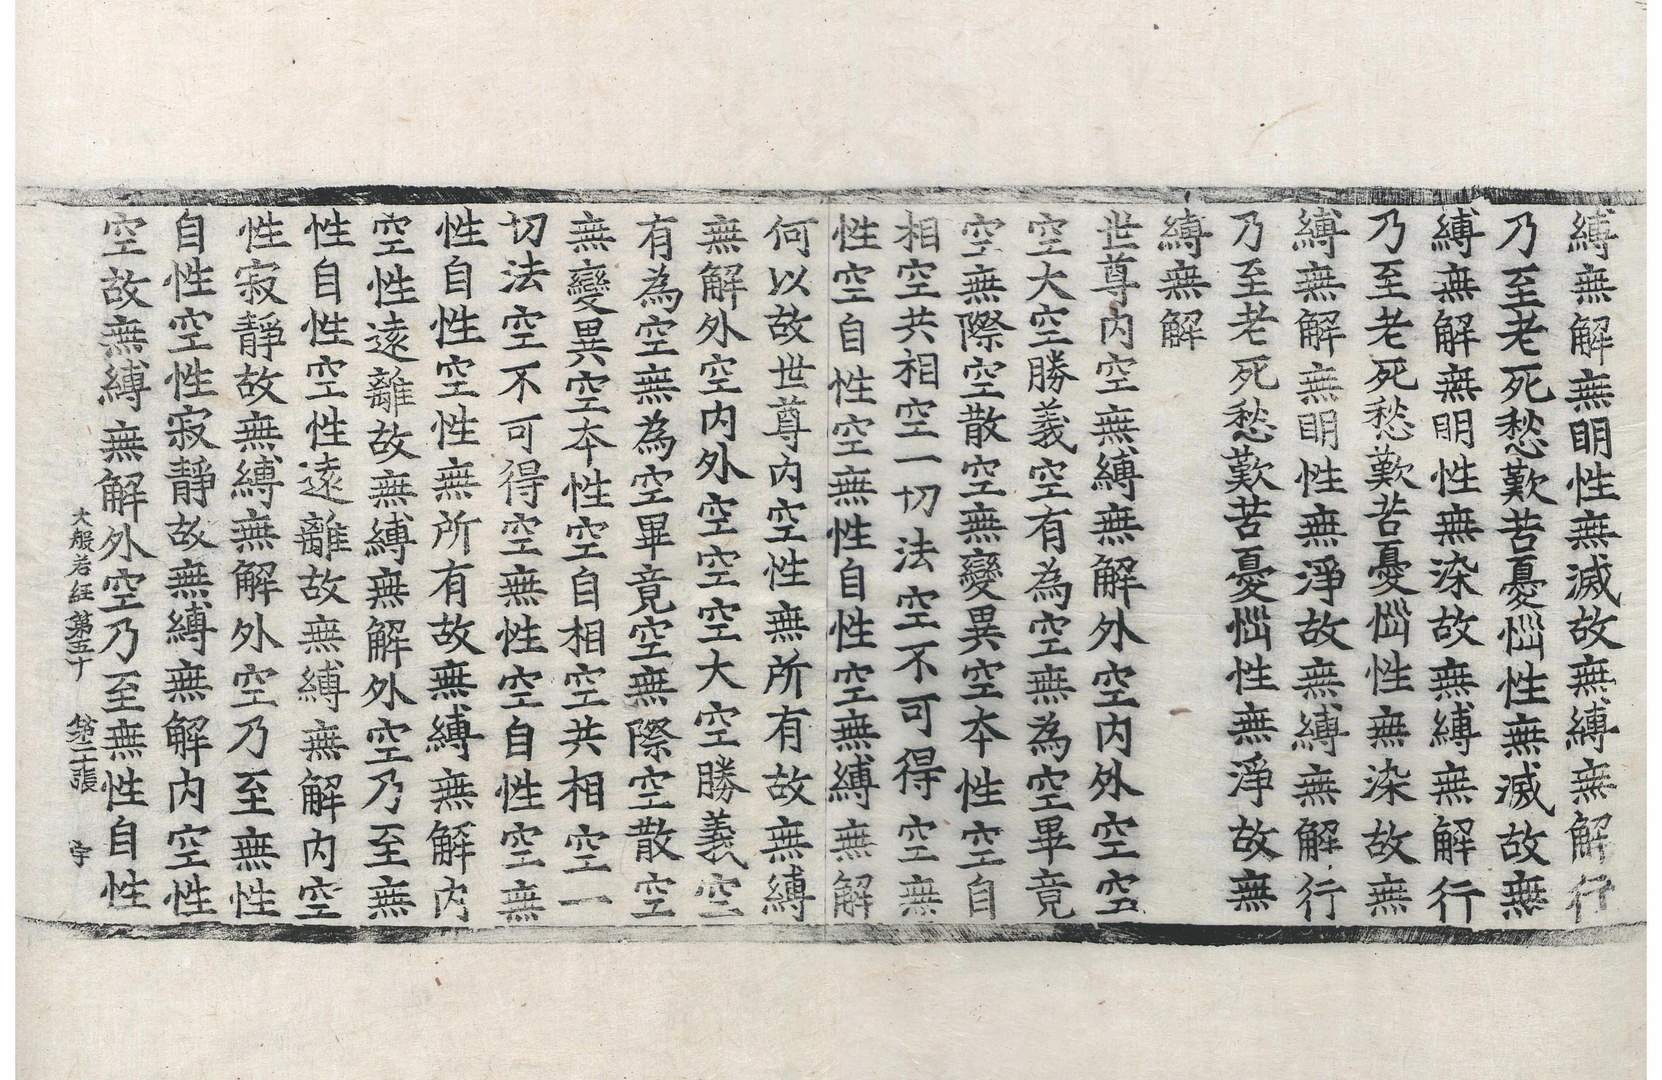 縛無解無明性無滅故無縛無解行
乃至老死愁歎苦憂惱性無滅故無
縛無解無明性無染故無縛無解行
乃至老死愁歎苦憂惱性無染故無
縛無解無明性無淨故無縛無解行
乃至老死愁歎苦憂惱性無淨故無
縛無解
世尊內空無縛無解外空內外空空
空大空勝義空有為空無為空畢竟
空無際空散空無變異空本性空自
相空共相空一切法空不可得空無
性空自性空無性自性空無縛無解
何以故世尊內空性無所有故無縛
無解外空內外空空空大空勝義空
有為空無為空畢竟空無際空散空
無變異空本性空自相空共相空一
切法空不可得空無性空自性空無
性自性空性無所有故無縛無解內
空性遠離故無縛無解外空乃至無
性自性空性遠離故無縛無解內空
性寂靜故無縛無解外空乃至無性
自性空性寂靜故無縛無解內空性
空故無縛無解外空乃至無性自性
大般若經第五十 第二十張 宇